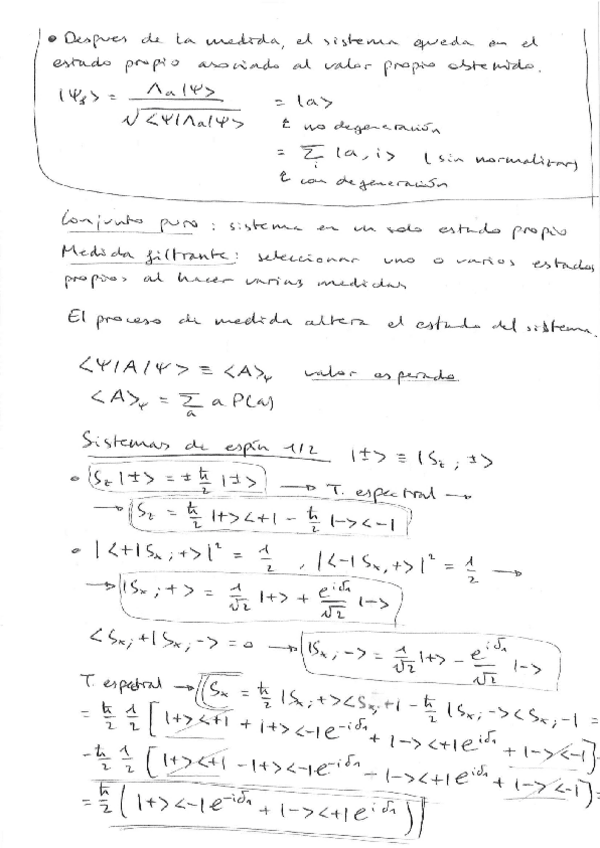 • Despues de la medida, el sistema queda en el
estado propio asociado al valor propio obtenido.
|Ψ_f> = Λ_a|Ψ> / √<Ψ|Λ_a|Ψ> = |a>
↑ no degeneración
= Σ_i |a, i> (sin normalizar)
↑ con degeneración
Conjunto puro: sistema en un solo estado propio
Medida filtrante: seleccionar uno o varios estados
propios al hacer varias medidas
El proceso de medida altera el estado del sistema.
<Ψ|A|Ψ> ≡ <A>_Ψ valor esperado
<A>_Ψ = Σ_a a P(a)
Sistemas de espín 1/2 |±> ≡ |S_z; ±>
• S_z|±> = ± ħ/2 |±> → T. espectral →
→ S_z = ħ/2 |+><+| - ħ/2 |-><-|
• |<+|S_x;+>|² = 1/2 , |<-|S_x,+>|² = 1/2 →
→ |S_x;+> = 1/√2 |+> + e^{iδ_1}/√2 |->
<S_x;+|S_x;-> = 0 → |S_x;-> = 1/√2 |+> - e^{iδ_1}/√2 |->
T. espectral → S_x = ħ/2 |S_x;+><S_x;+| - ħ/2 |S_x;-><S_x;-| =
= ħ/2 1/2 [|+><+| + |+><-|e^{-iδ_1} + |-><+|e^{iδ_1} + |-><-|] -
- ħ/2 1/2 [|+><+| - |+><-|e^{-iδ_1} - |-><+|e^{iδ_1} + |-><-|] =
= ħ/2 (|+><-|e^{-iδ_1} + |-><+|e^{iδ_1})